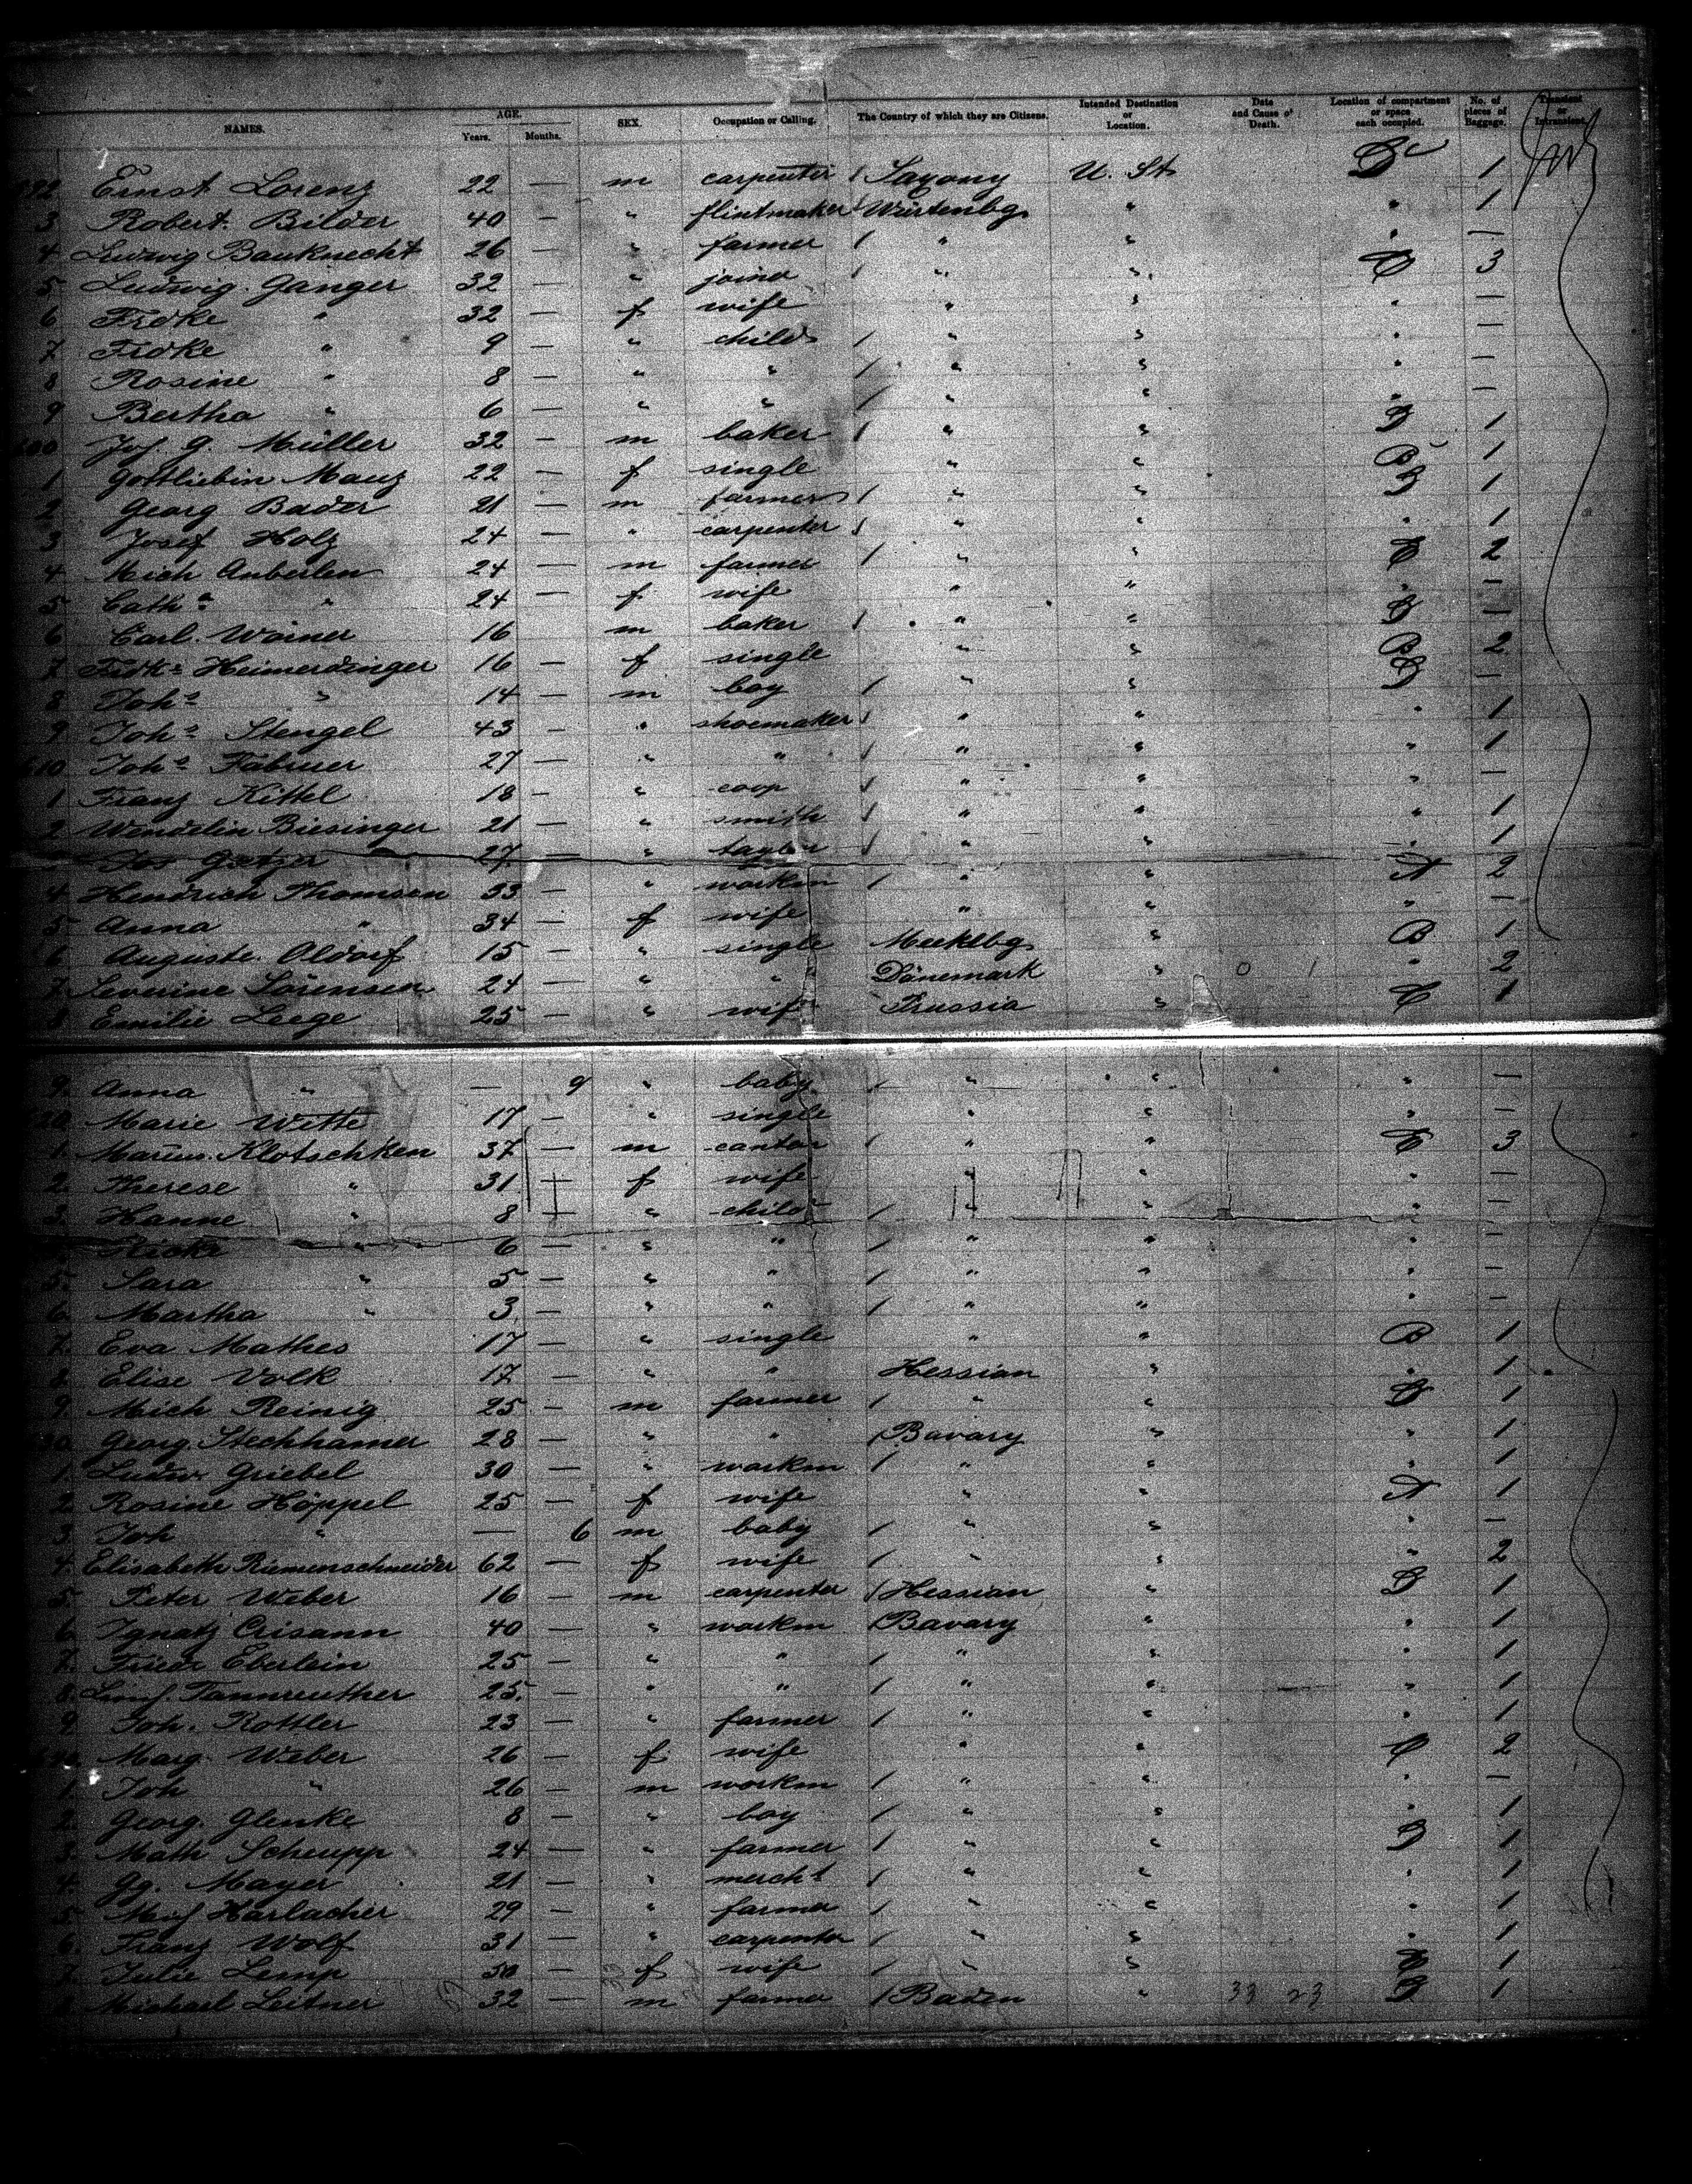 NAMES. AGE. Years. Months. SEX. Occupation or Calling. The Country of which they are Citizens. Intended Destination or Location. Date and Cause of Death. Location of compartment or space each occupied. No. of pieces of Baggage. Transient or Intransient.
Ernst Lorenz 22 — m carpenter Saxony U. St 1
3 Robert Bilder 40 — " flintmaker Würtenbg " " 1
4 Ludwig Bauknecht 26 — " farmer " " " —
5 Ludwig Ganger 32 — " joiner " " 3
6 Frdke " 32 — f wife " " " —
7 Frdke " 9 — " child " " " —
8 Rosine " 8 — " " " " " —
9 Bertha " 6 — " " " " " —
600 Jos. G. Müller 32 — m baker " " 1
1 Gottliebin Manz 22 — f single " " B 1
2 Georg Bader 21 — m farmer " " 1
3 Josef Holz 24 — " carpenter " " " 1
4 Mich Anberlen 24 — m farmer " " 2
5 Cath.a " 24 — f wife " " " —
6 Carl Warner 16 m baker " " —
7 Frdk.e Heimerdinger 16 — f single " " B 2
8 Joh.s " 14 — m boy " " —
9 Joh.s Stengel 43 — " shoemaker " " " 1
610 Joh.s 27 — " " " " " 1
1 Franz Kittel 18 — " coop " " " —
2 Wendelin Biesinger 21 — " smith " " " 1
27 — " taylor " " " 1
4 Hendrich Thomsen 33 — " workm " " A 2
5 Anna " 34 — f wife " " " —
6 Auguste Oldorf 15 — " single Mecklbg " B 1
7 Severine Sörensen 24 — " " Dänemark " 0 1 " 2
8 Emilie Leege 25 — " wif Prussia " 1
9 Anna " — 9 " baby " " " —
620 Marie Witte 17 — " single " " " —
1 Klotschken 37 — m cantor " " 3
2 Therese " 31 — f wife " " " —
3 Hanne " 8 — " child " " " —
Ricke " 6 — " " " " " —
5 Sara " 5 — " " " " " —
6 Martha " 3 — " " " " " —
7 Eva Mathes 17 — " single " " B 1
8 Elise Volk 17 — " " Hessian " " 1
9 Mich Reinig 25 — m farmer " " 1
630 Georg Stechhamer 28 — " " Bavary " " 1
1 Ludw. Griebel 30 — " workm " " " 1
2 Rosine Höppel 25 — f wife " " A 1
3 Joh " — 6 m baby " " " —
4 Elisabeth Riemenschneider 62 — f wife " " " 2
5 Peter Weber 16 — m carpenter Hessian " 1
6 Ignatz Crisann 40 — " workm Bavary " " 1
7 Friedr Eberlein 25 — " " " " " 1
8 Tannreuther 25 — " " " " " 1
9 Joh. Rottler 23 — " farmer " " " 1
Marg. Weber 26 — f wife " " 2
1 Joh " 26 — m workm " " " —
2 Georg. Glenke 8 — " boy " " " 1
3 Math Scheupp 24 — " farmer " " 1
4 Gg. Mayer 21 — " merch.t " " " 1
5 Harlacher 29 — " farmer " " " 1
6 Franz Wolf 31 — " carpenter " " " 1
7 Julie Lemp 50 — f wife " " 1
8 Michael Leitner 32 — m farmer Baden " 33 23 1